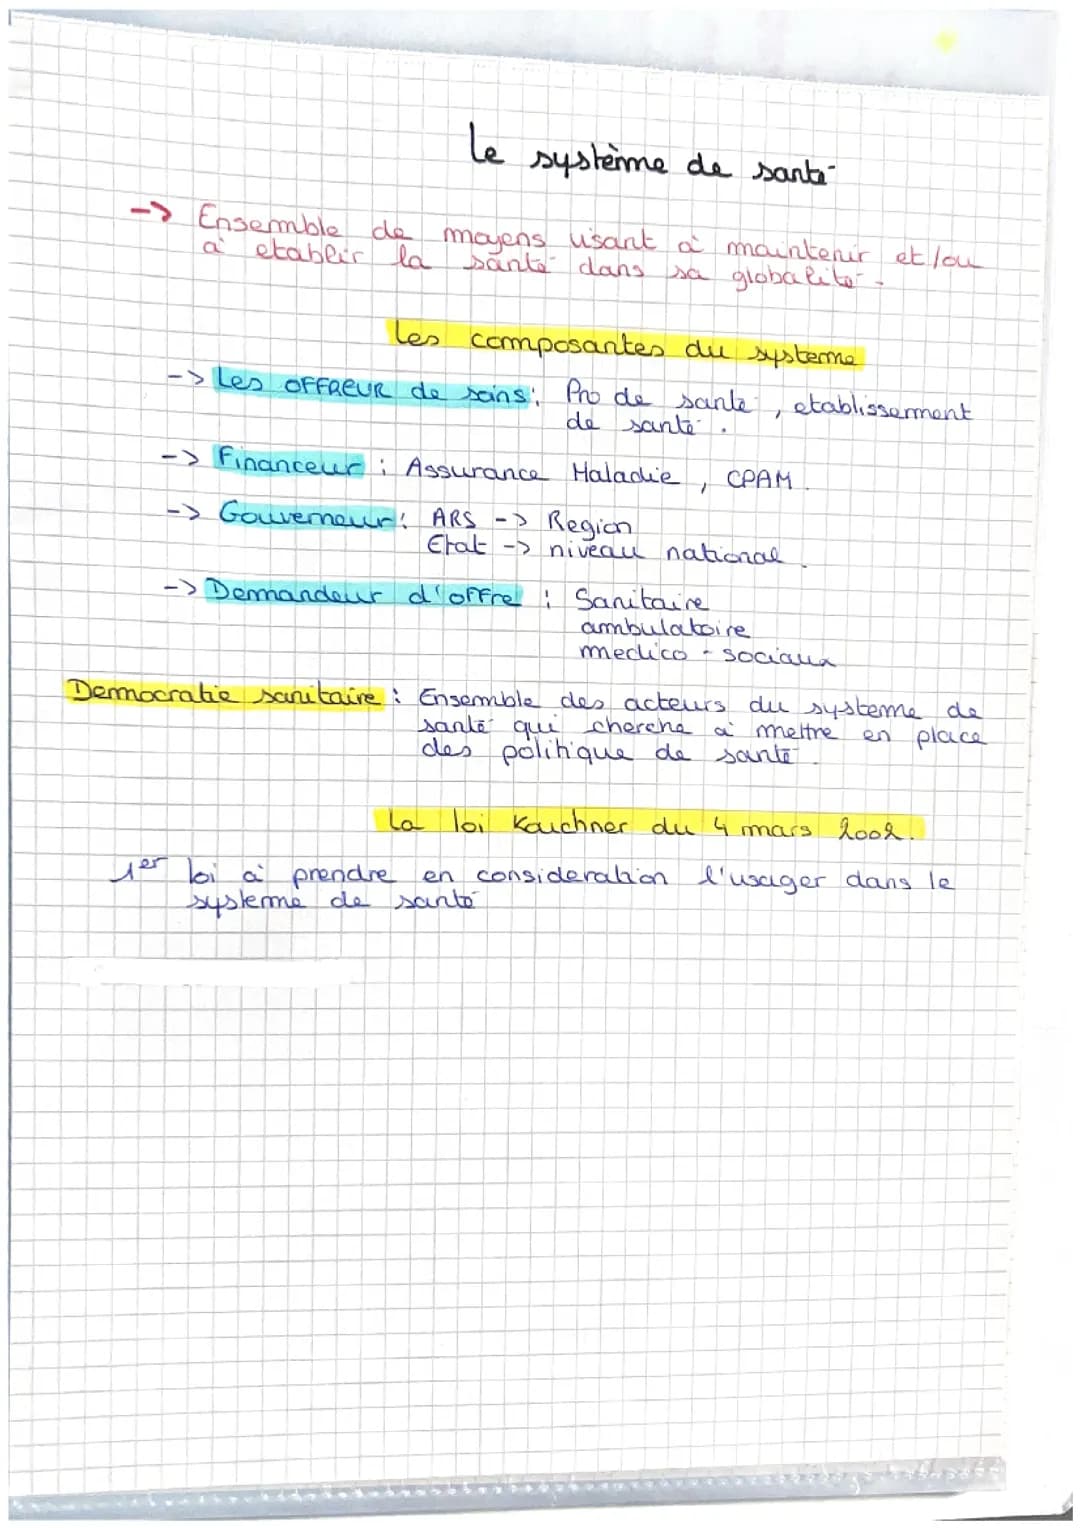 Le systèime de santé
-> Ensemble de moyens visant à maintenir et/ou
à etablir la santé dans sa globalité.
Les composantes du systeme
-> Les OFFREUR de soins : Pro de santé, etablissement
de santé.
-> Financeur : Assurance Maladie, CPAM.
-> Gouverneur : ARS -> Region
Etat -> niveau national.
-> Demandeur d'offre : Sanitaire
ambulatoire
medico-sociaux
Democratie sanitaire : Ensemble des acteurs du systeme de
santé qui cherche à mettre en place
des politique de santé.
La loi Kouchner du 4 mars 2002.
1er loi à prendre en consideration l'usager dans le
systeme de santé